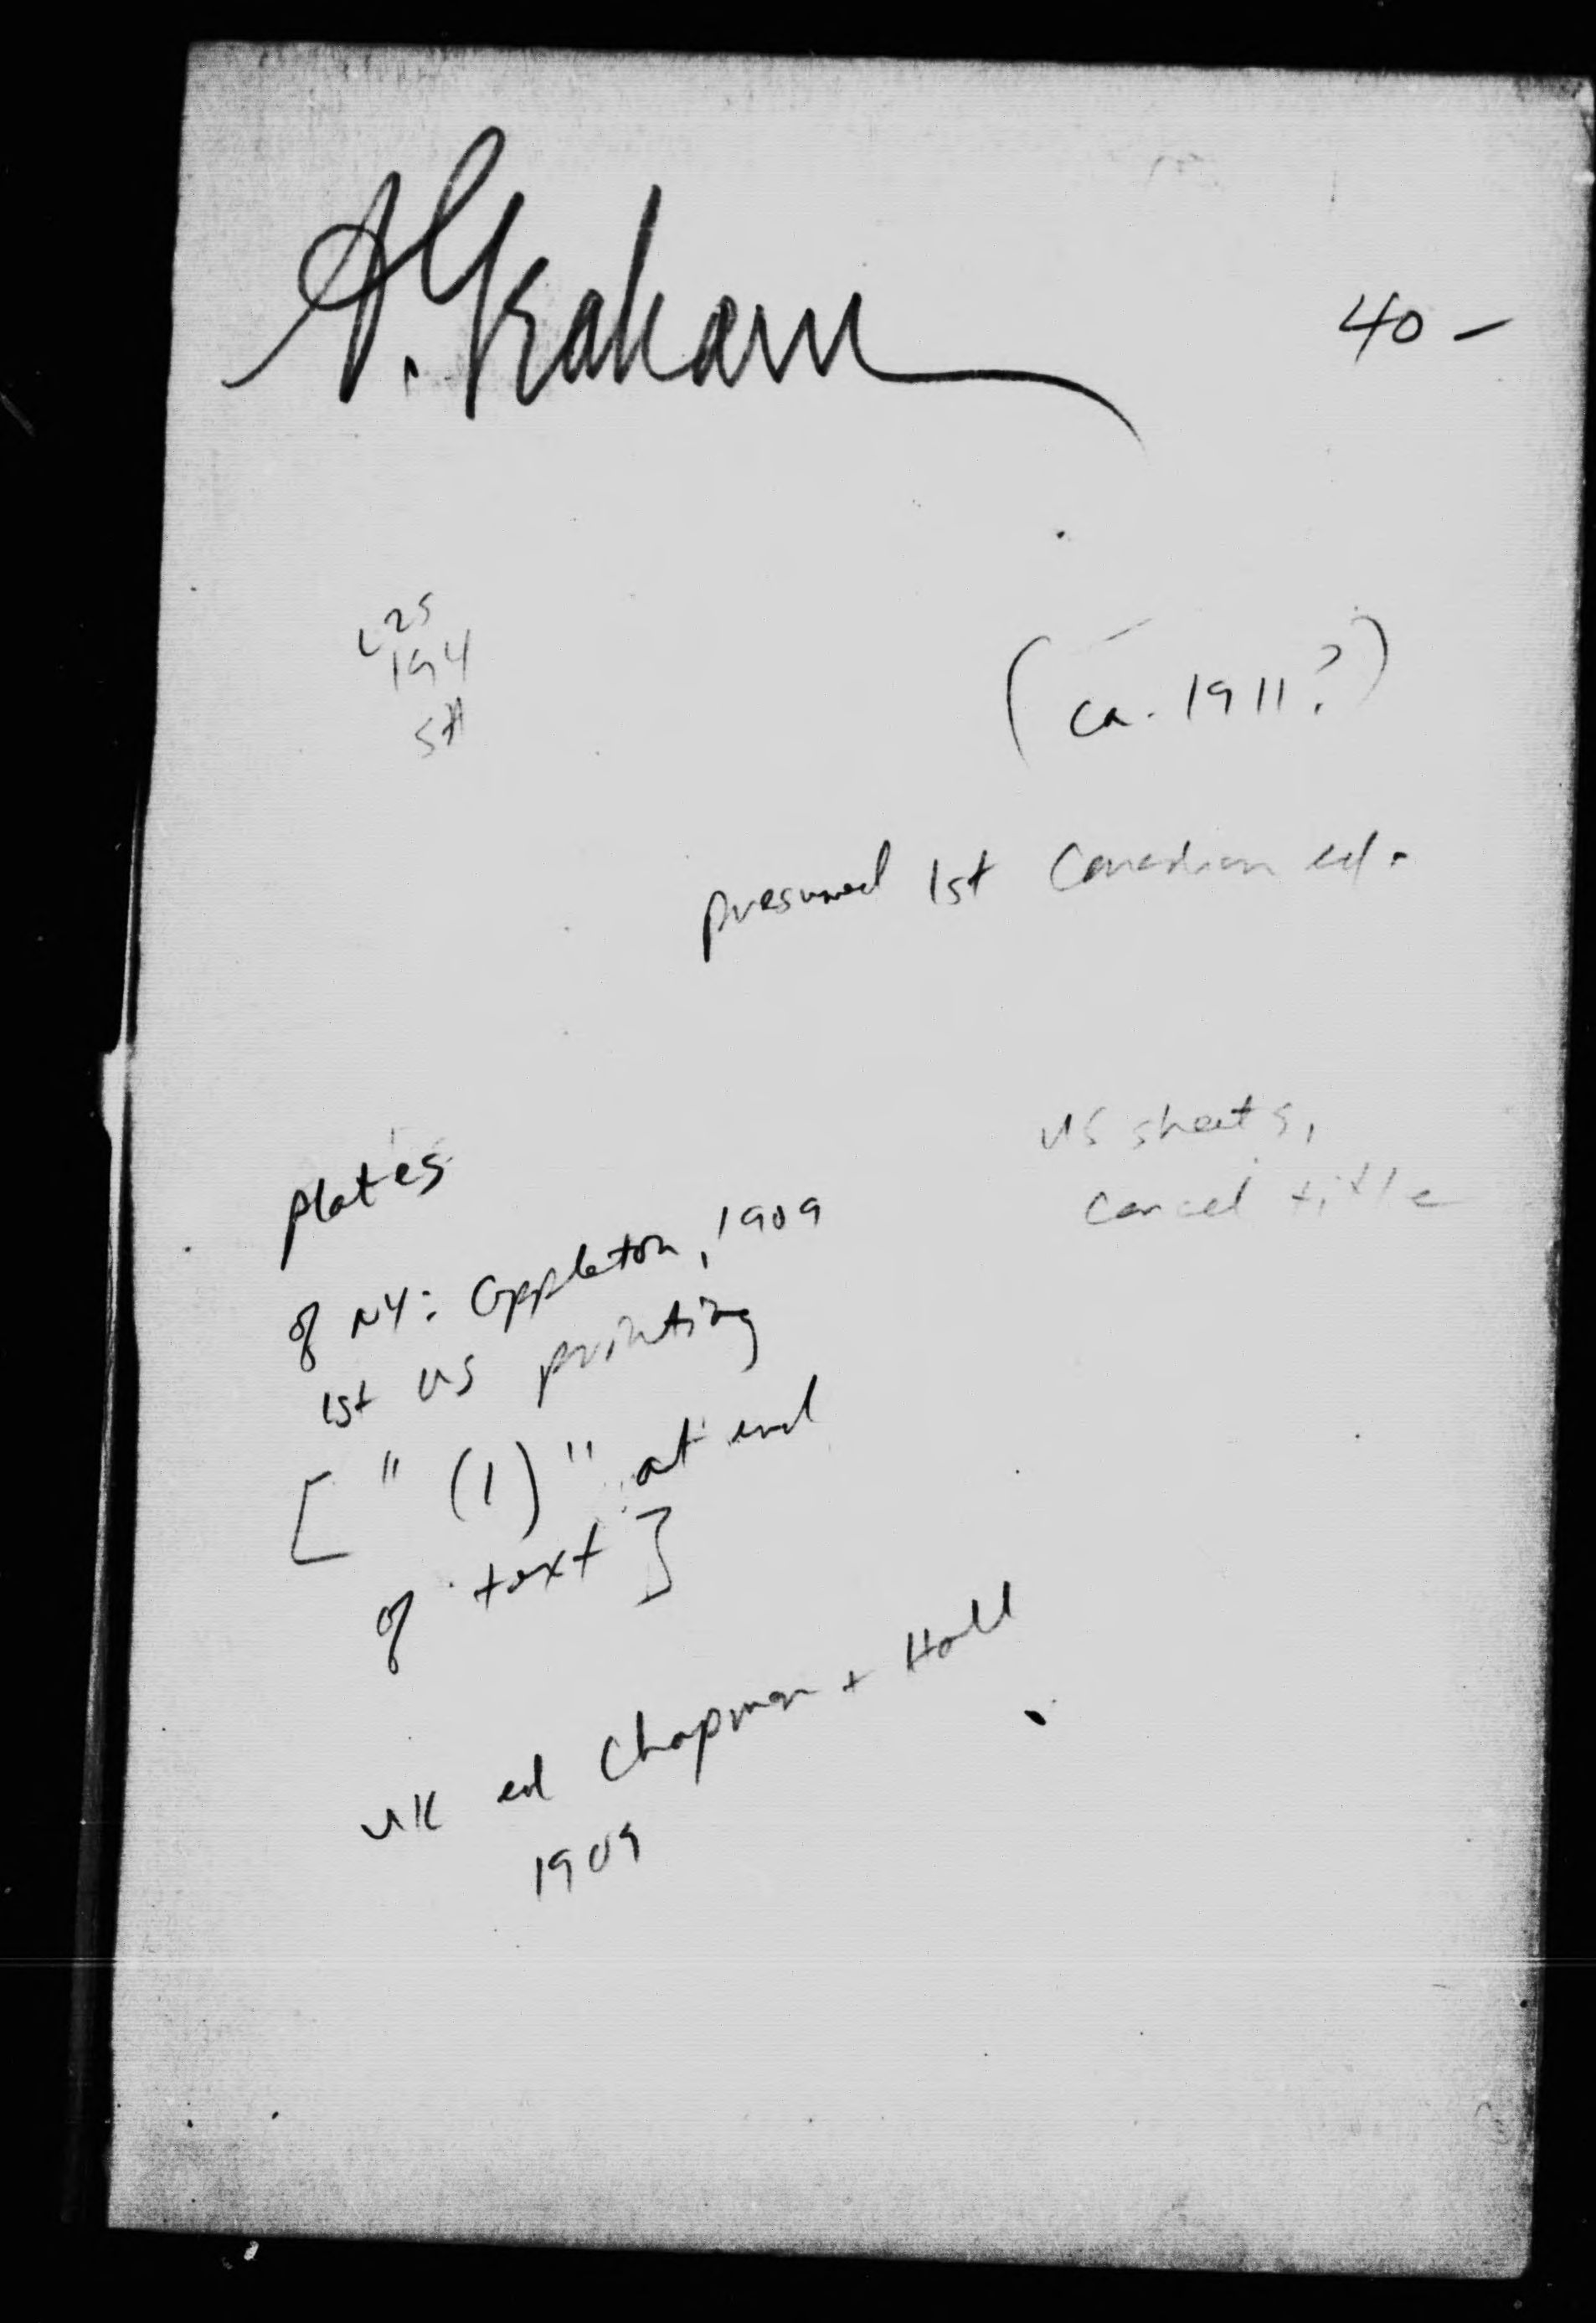 A. Graham
40 -
L25
194
(ca. 1911?)
presumed 1st Canadian ed.
US sheets,
cancel title
plates
of NY: Appleton, 1909
1st US printing
[ " (1) " at end
of text ]
UK ed Chapman + Hall
1909